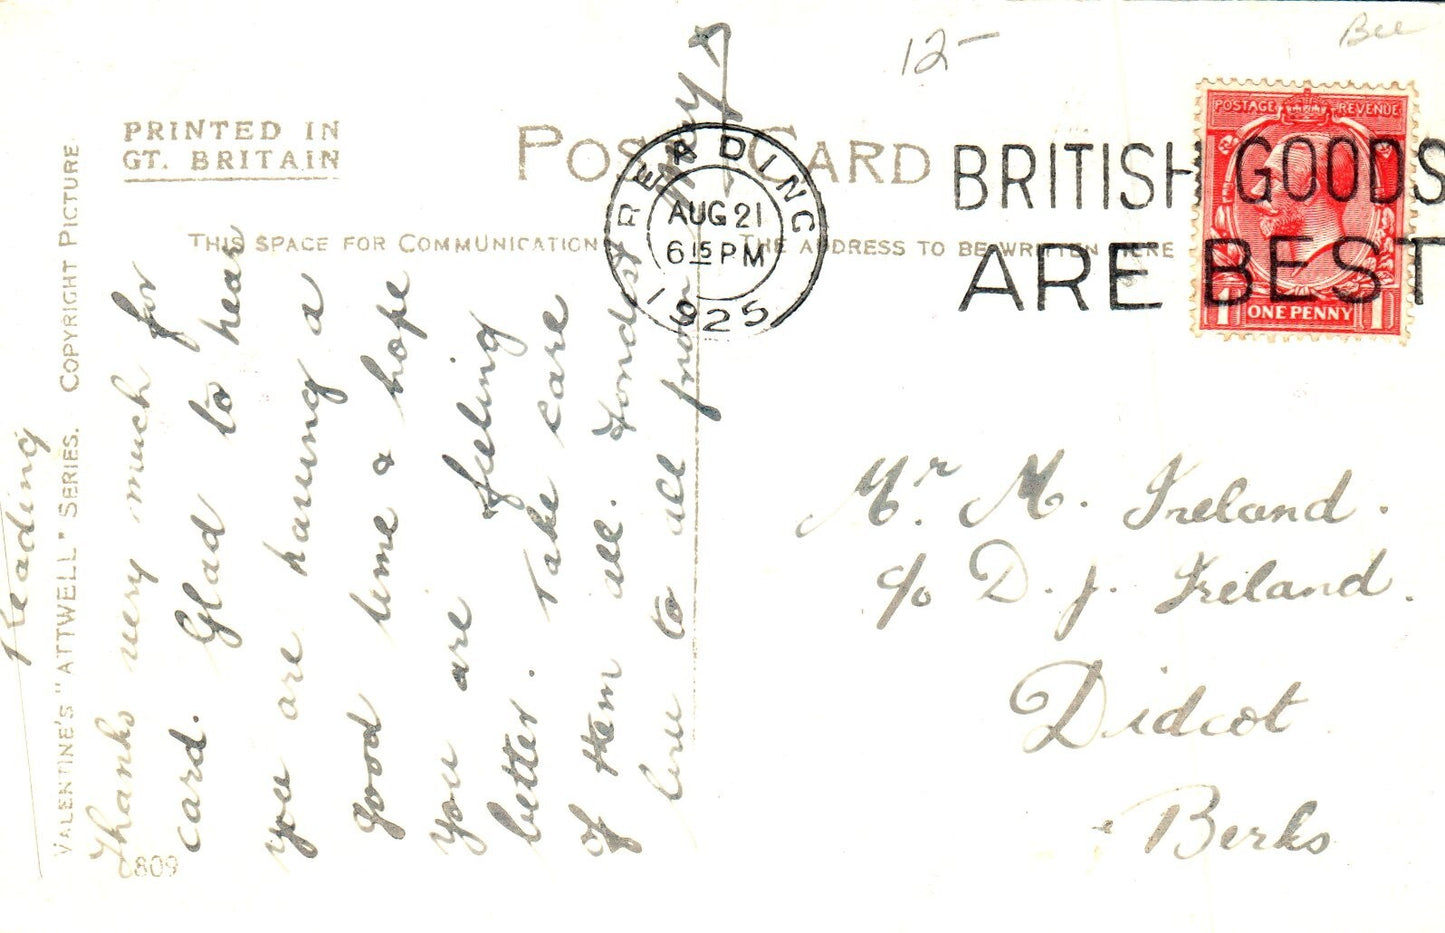 12-
Bee
PRINTED IN
GT. BRITAIN
POST CARD
THIS SPACE FOR COMMUNICATION
THE ADDRESS TO BE WRITTEN HERE
VALENTINE'S "ATTWELL" SERIES. COPYRIGHT PICTURE
READING
AUG 21
6 15 PM
1925
BRITISH GOODS
ARE BEST
POSTAGE REVENUE
1 ONE PENNY 1
Reading
Thanks very much for
card. Glad to hear
you are having a
good time & hope
you are feeling
better. Take care
of them all. Fondest
love to all from
May X
Mr. M. Ireland.
c/o D. J. Ireland.
Didcot
Berks
809